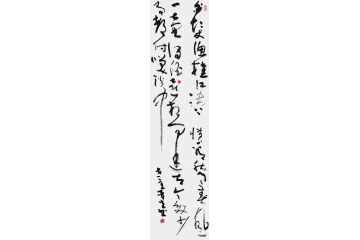 白发渔樵江渚上惯看秋月春风
一壶浊酒喜相逢古今多少
事都付笑谈中